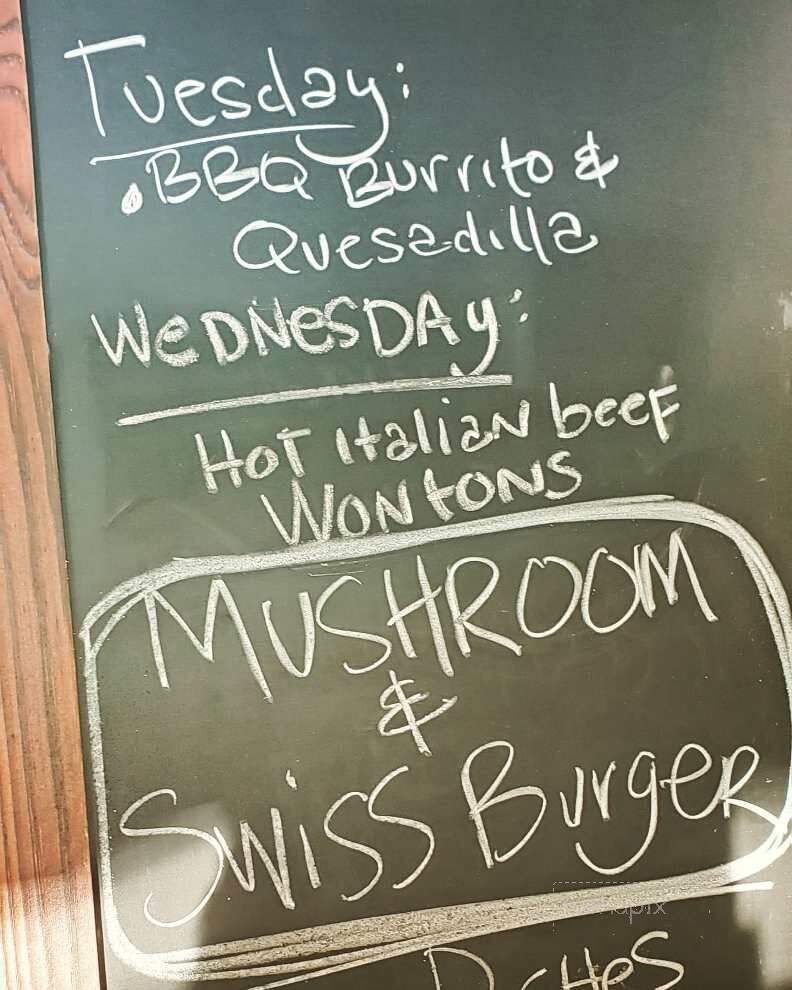 Tuesday:
. BBQ Burrito &
Quesadilla
WeDNesDAy:
HoT Italian beeF
WONtONS
MUSHROOM
&
SWiSS BurgeR